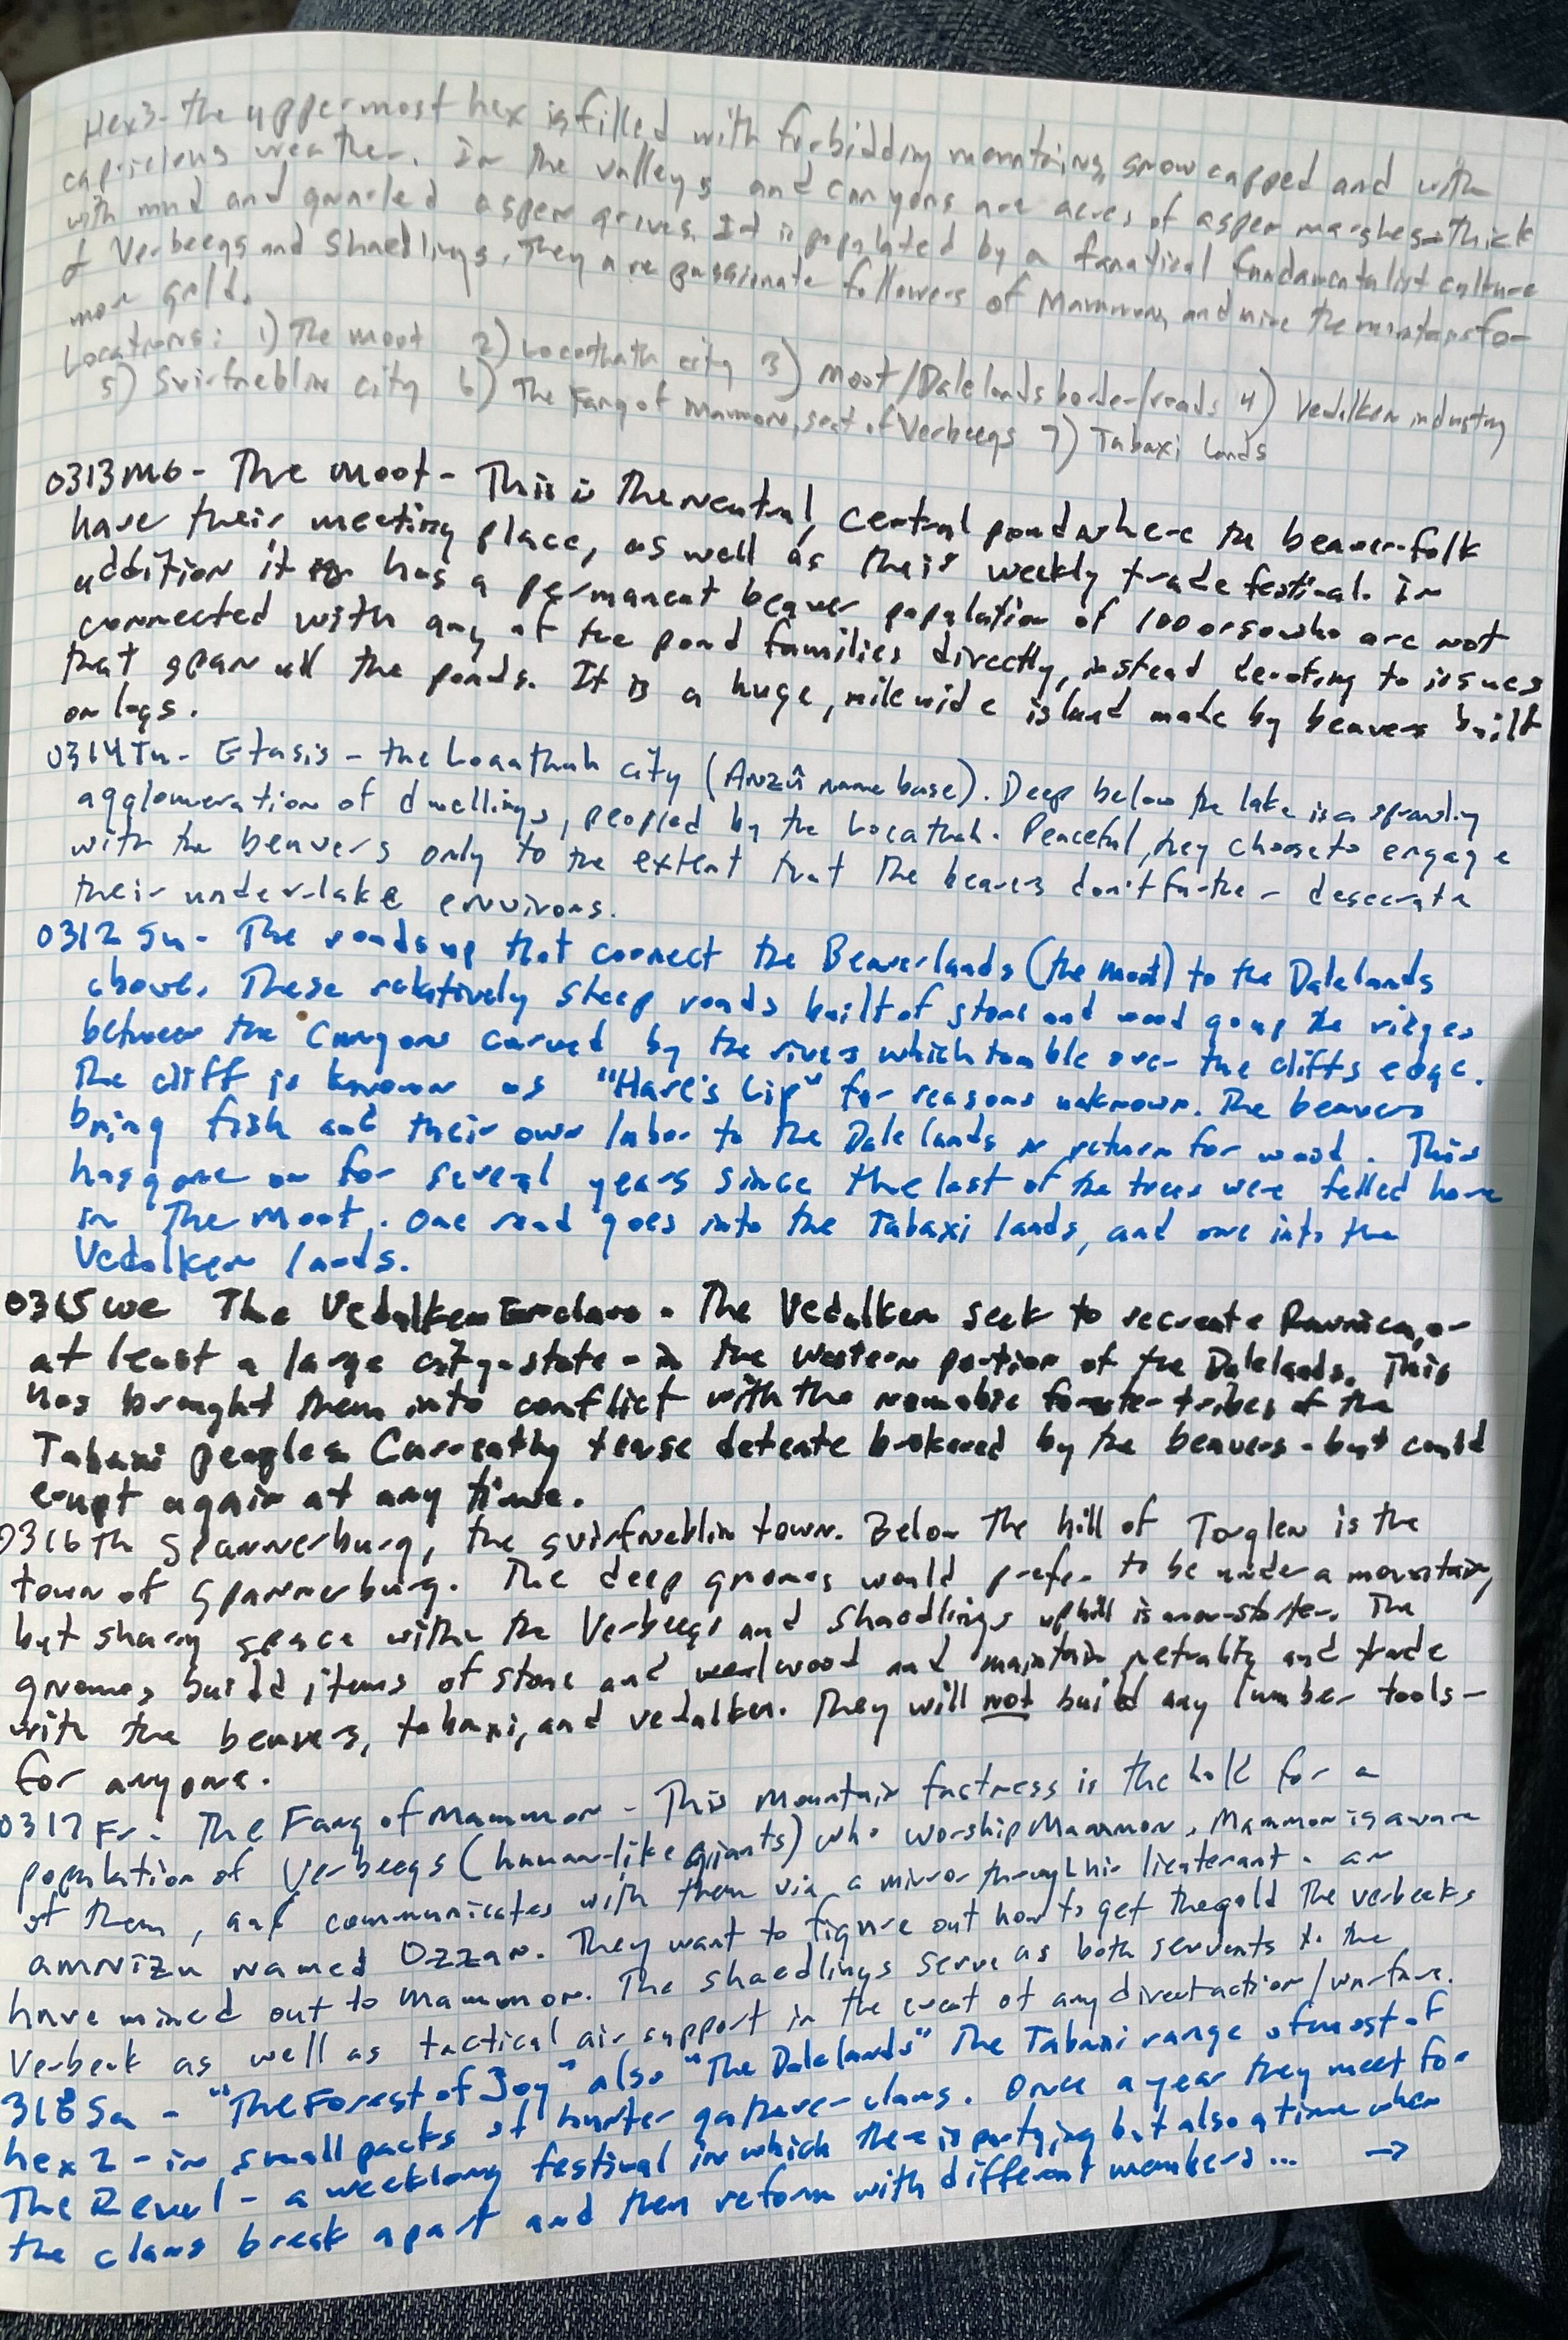 Hex3- the uppermost hex is filled with forbidding mountains, snowcapped and with
capricious weather. In the valleys and canyons are acres of aspen marshes - thick
with mud and gnarled aspen groves. It is populated by a fanatical fundamentalist culture
of Verbeegs and Shaedlings. They are passionate followers of Mammon, and mine the mountains for
more gold.
Locations: 1) The Moot 2) Locathah city 3) Moot/Dalelands border/roads 4) Vedalken industry
5) Svirfneblin city 6) The Fang of Mammon, seat of Verbeegs 7) Tabaxi Lands
0313Mo - The Moot - This is the neutral, central pond where the beaver-folk
have their meeting place, as well as their weekly trade festival. In
addition it has a permanent beaver population of 100 or so who are not
connected with any of the pond families directly, instead devoting to issues
that span all the ponds. It is a huge, mile wide island made by beavers built
on logs.
0314Tu - Etasis - the Locathah city (Anzû name base). Deep below the lake is a sprawling
agglomeration of dwellings, peopled by the Locathah. Peaceful, they choose to engage
with the beavers only to the extent that the beavers don't further desecrate
their underlake environs.
0312 Su - The roads up that connect the Beaverlands (the Moot) to the Dalelands
above. These relatively steep roads built of stone and wood go up the ridges
between the canyons carved by the rivers which tumble over the cliffs edge.
The cliff is known as "Hare's Lip" for reasons unknown. The beavers
bring fish and their own labor to the Dalelands in return for wood. This
has gone on for several years since the last of the trees were felled here
in The Moot. One road goes into the Tabaxi lands, and one into the
Vedalken lands.
0315 We The Vedalken Enclave - The Vedalken seek to recreate Ravnica, or
at least a large city-state - in the western portion of the Dalelands. This
has brought them into conflict with the nomadic forester tribes of the
Tabaxi peoples Currently tense detente brokered by the beavers - but could
erupt again at any time.
0316 Th Spannerburg, the svirfneblin town. Below the hill of Torglen is the
town of Spannerburg. The deep gnomes would prefer to be under a mountain,
but sharing space with the Verbeegs and Shaedlings uphill is non-starter. The
gnomes build items of stone and wood and maintain netrality and trade
with the beavers, tabaxi, and vedalken. They will not build any lumber tools -
for anyone.
0317 Fr - The Fang of Mammon - This mountain fastness is the hold for a
population of Verbeegs (human-like giants) who worship Mammon. Mammon is aware
of them, and communicates with them via a mirror through his lieutenant - an
amnizu named Ozzan. They want to figure out how to get the gold the verbeeks
have mined out to Mammon. The shaedlings serve as both servents to the
Verbeek as well as tactical air support in the event of any direct action/warfare.
318 Sa - "The Forest of Joy" also "The Dalelands" The Tabaxi range of most of
hex 2 - in small packs of hunter gatherer clans. Once a year they meet for
The Revel - a weeklong festival in which there is partying but also a time when
the clans break apart and then reform with different members... →